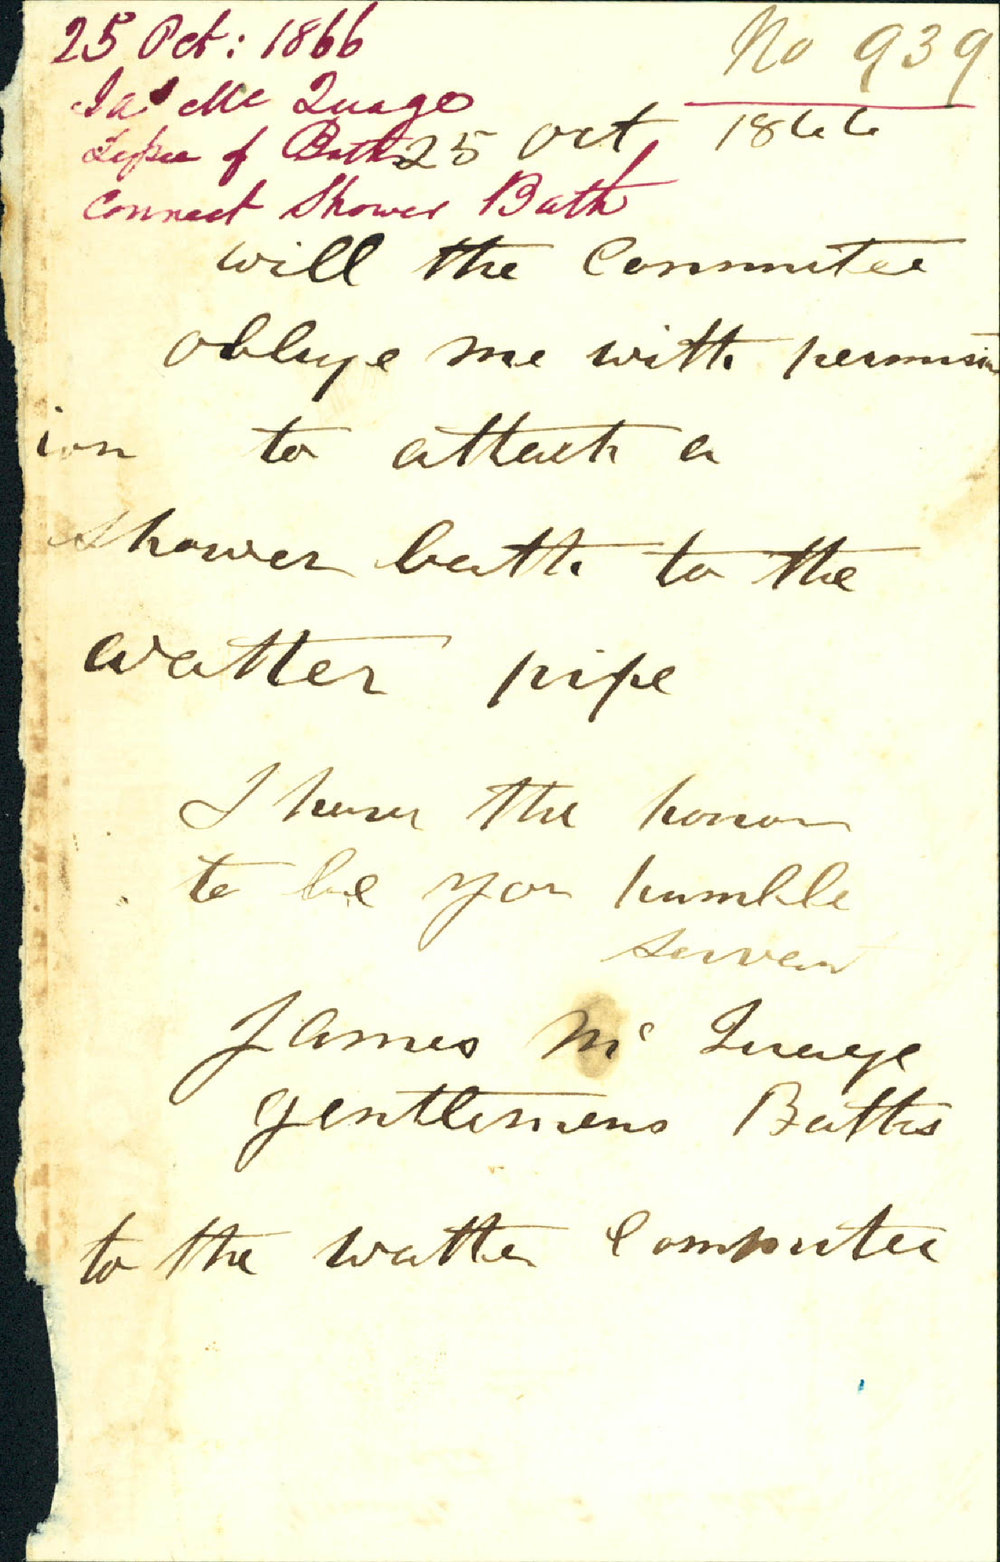 25 Oct: 1866
No 939
Jas Mc Quage
Lessee of Baths
25 Oct 1866
Connect Shower Bath
will the Committee
oblige me with permiss
ion to attach a
Shower bath to the
watter pipe
I have the honor
to be your humble
servant
James Mc Quage
Gentlemens Baths
to the watter Committee